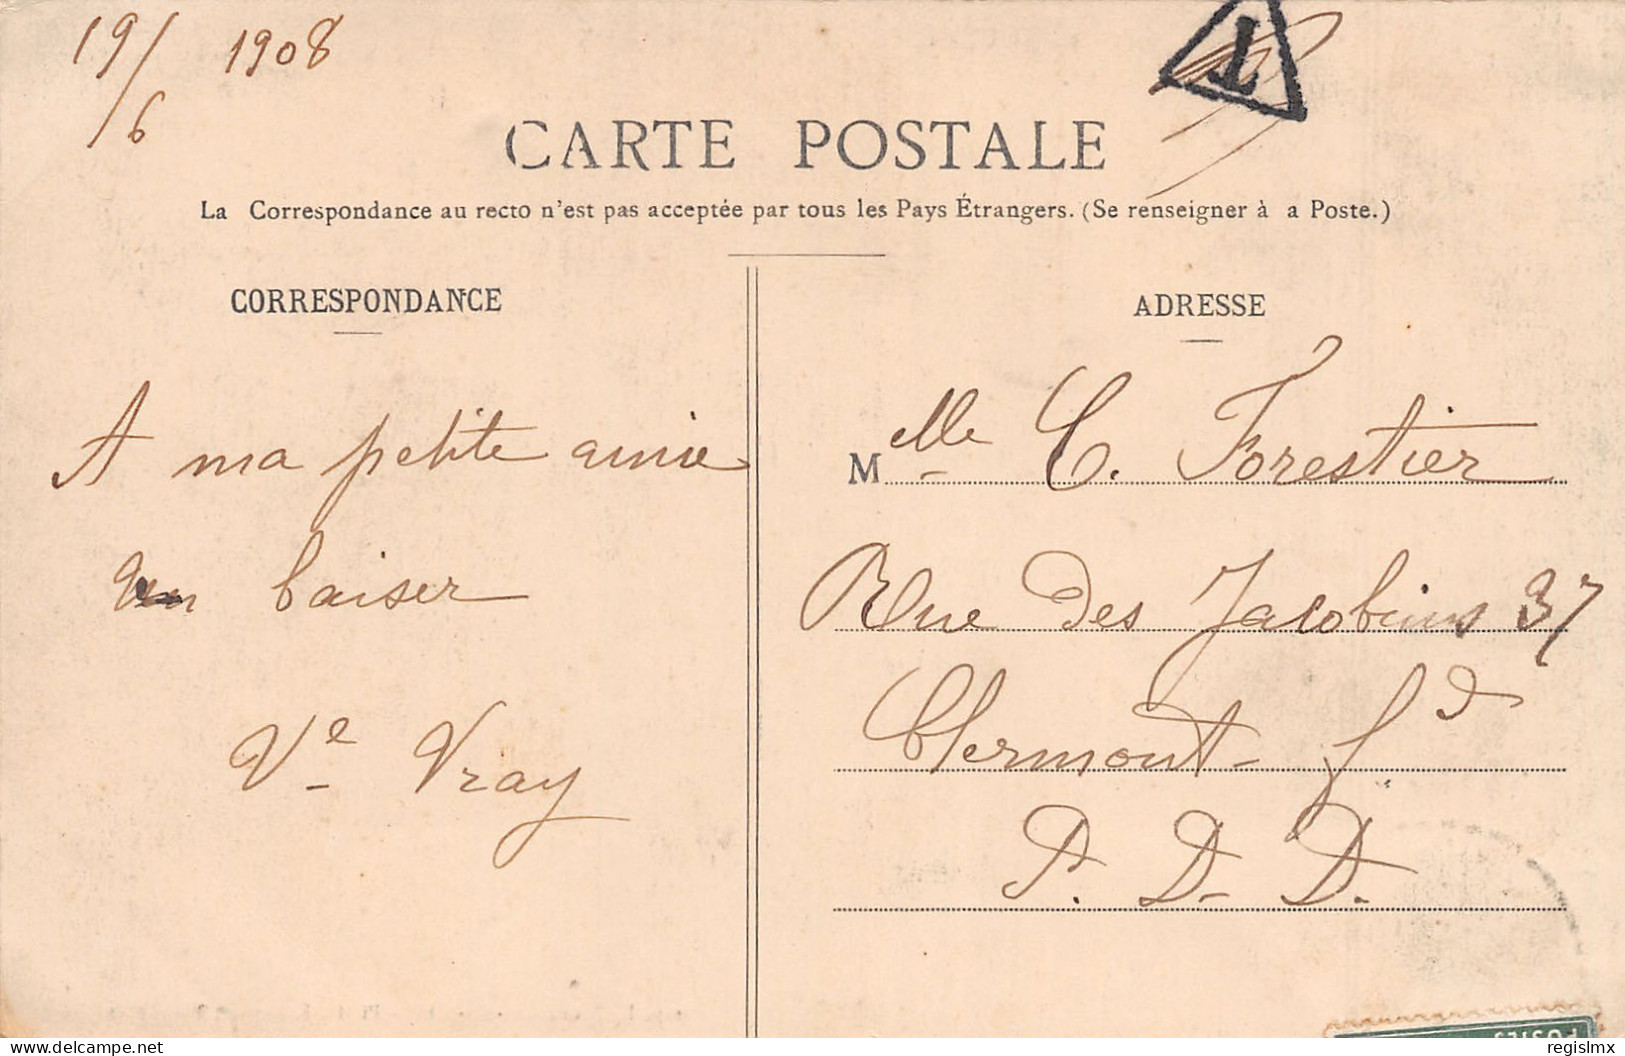 19/6 1908
T
CARTE POSTALE
La Correspondance au recto n'est pas acceptée par tous les Pays Étrangers. (Se renseigner à a Poste.)
CORRESPONDANCE
A ma petite amie
un baiser
Ve Vray
ADRESSE
Melle C. Forestier
Rue Des Jacobins 37
Clermont- fd
P. D. D.
POSTES
delcampe.net
regislmx